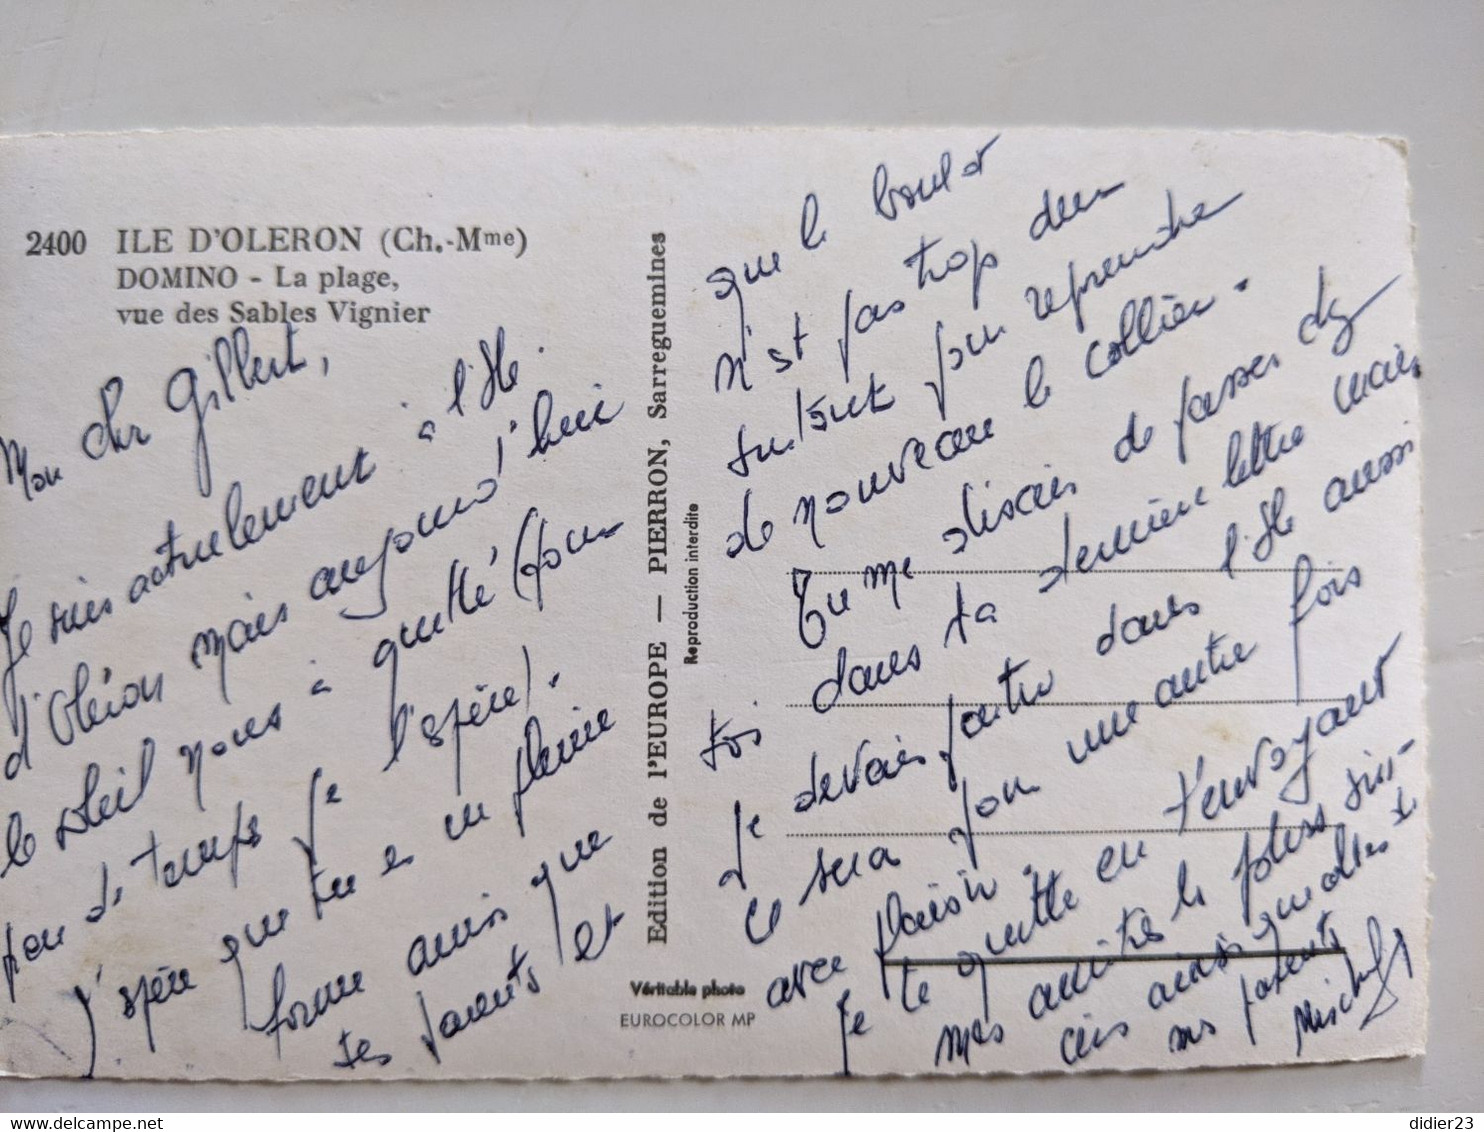 2400 ILE D'OLERON (Ch.-Mme)
DOMINO - La plage,
vue des Sables Vignier
Mon cher Gilbert,
Je suis actuellement à l'Ile
d'Oléron mais aujourd'hui
le soleil nous a quitté (pour
peu de temps je l'espère).
J'espère que tu es en pleine
forme ainsi que
tes parents et
Edition de l'EUROPE — PIERRON, Sarreguemines
Reproduction interdite
Véritable photo
EUROCOLOR MP
que le boulot
n'est pas trop dur
surtout pour reprendre
de nouveau le collier.
Tu me disais de passer chez
toi dans ta dernière lettre mais
je devais partir dans l'Ile aussi
ce sera pour une autre fois
avec plaisir.
Je te quitte en t'envoyant
mes amitiés les plus sin-
cères ainsi qu'à
tes parents
Michel
delcampe.net
didier23